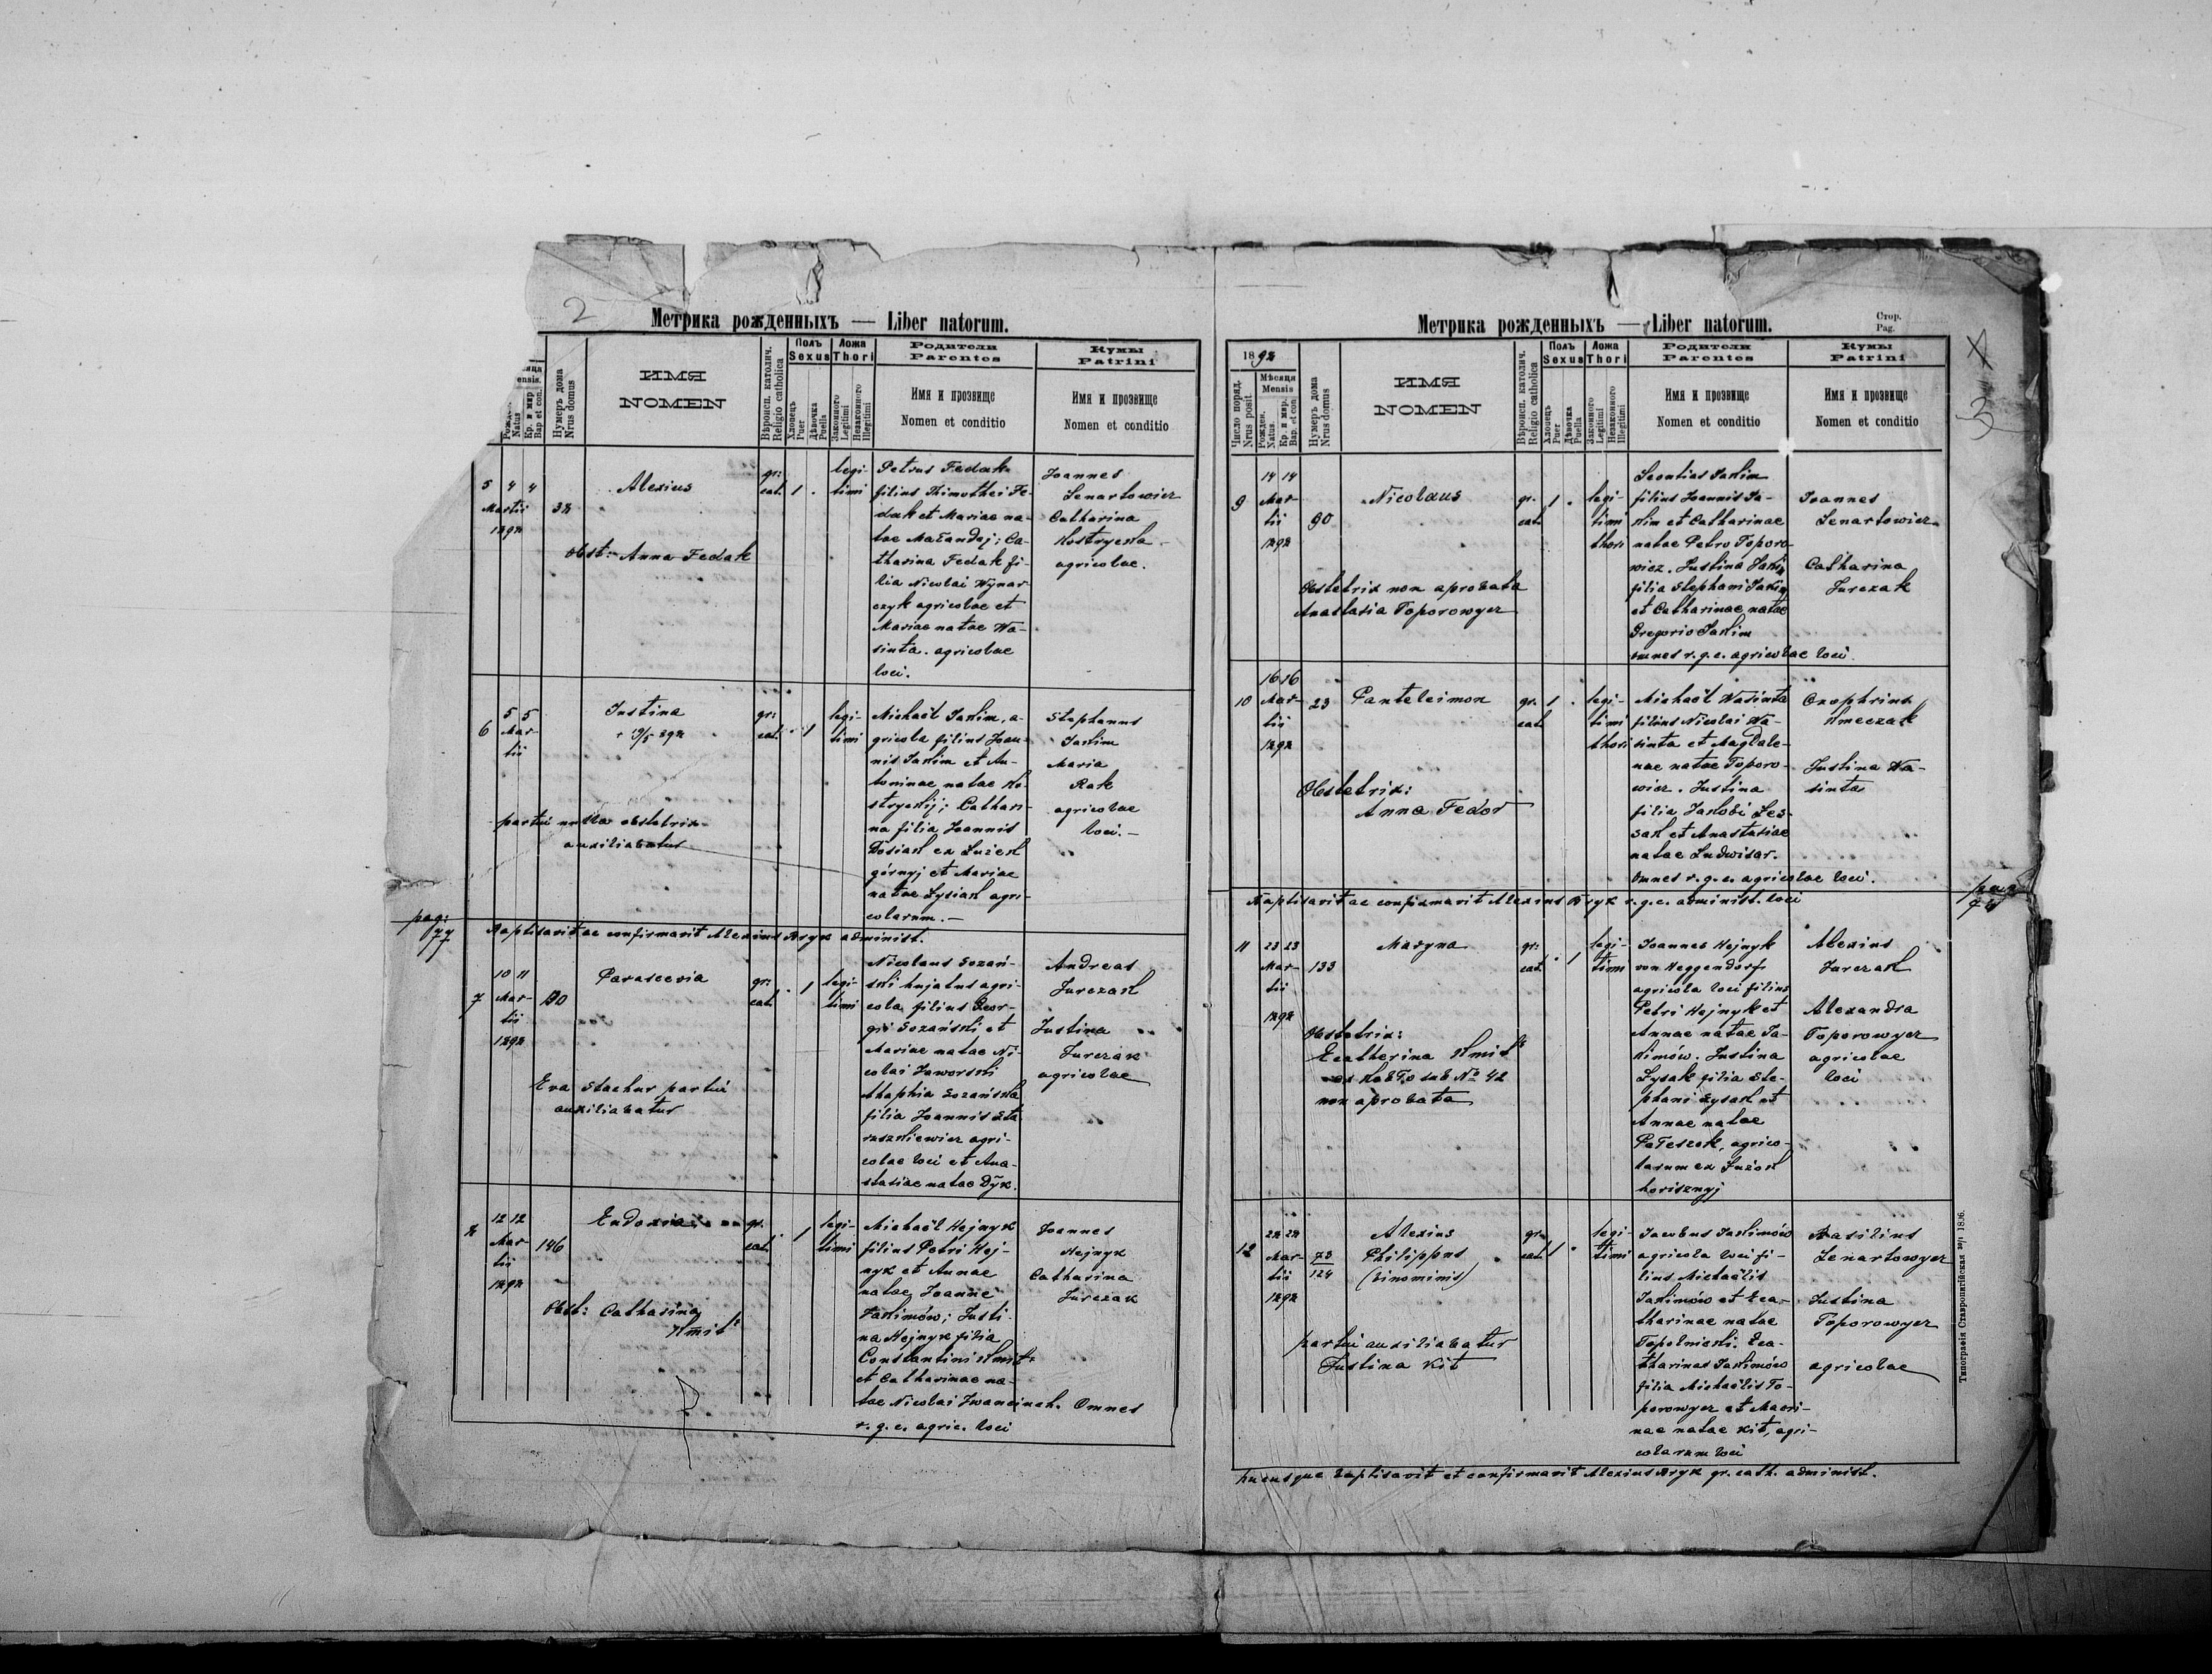 2
Метрика рожденныхъ — Liber natorum.
Natus
Кр. и мир.
Bap. et con.
Нумеръ дома
Nrus domus
ИМЯ
NOMEN
Вѣроисп. католич.
Religio catholica
Полъ
Sexus
Хлопецъ
Puer
Дѣвочка
Puella
Ложа
Thori
Законного
Legitimi
Незаконного
Illegitimi
Родители
Parentes
Имя и прозвище
Nomen et conditio
Кумы
Patrini
Имя и прозвище
Nomen et conditio
5 4 4
Martii
1898
38
Alexius
Obst: Anna Fedak
gr:
cat. 1 .
legi-
timi
Petrus Fedak
filius Thimothei Fe-
dak et Mariae na-
tae Małandij; Ca-
tharina Fedak fi-
lia Nicolai Wynar-
czyk agricolae et
Mariae natae Wa-
sinta. agricolae
loci.
Joannes
Lenartowicz
Catharina
Kostrycka
agricolae.
6
5 5
Mar-
tii
Justina
+ 19/5 898
partui nulla obstetrix
auxiliabatur
gr:
cat. . 1
legi-
timi
Michaël Jakim, a-
gricola filius Joan-
nis Jakim et An-
toninae natae Ko-
stryckij; Cathari-
na filia Joannis
Dosiak ex Łużek
górnyj et Mariae
natae Łysiak agri-
colarum.—
Stephanus
Jakim
Maria
Rak
agricolae
loci.—
pag:
77
Baptisavit ac confirmavit Alexius Bryk administ.
7
10 11
Mar-
tii
1898
Parascevia
Eva Stachur partui
auxiliabatur
gr:
cat. . 1
legi-
timi
Nicolaus Sozań-
ski hujatus agri-
cola filius Geor-
gii Sozański et
Mariae natae Ni-
colai Jaworski
Ahaphia Sozańska
filia Joannis Sta
ruszkiewicz agri-
colae loci et Ana-
stasiae natae Dyk.
Andreas
Jurczak
Justina
Jurczak
agricolae
8
12 12
Mar-
tii
1898
146
Eudoxia
Obst: Catharina
Kmit
gr.
cat. . 1
legi-
timi
Michaël Hejnyk
filius Petri Hej-
nyk et Annae
natae Joanne
Jakimów; Justi-
na Hejnyk filia
Constantini Kmit
et Catharinae na-
tae Nicolai Iwancinah. Omnes
r. g. c. agric. loci
Joannes
Hejnyk
Catharina
Jurczak
Метрика рожденныхъ — Liber natorum.
Стор.
Pag.
3
1898
Число поряд.
Nrus posit.
Мѣсяца
Mensis
Рожден.
Natus.
Кр. и мир.
Bap. et con
Нумеръ дома
Nrus domus
ИМЯ
NOMEN
Вѣроисп. католич.
Religio catholica
Полъ
Sexus
Хлопецъ
Puer
Дѣвочка
Puella
Ложа
Thori
Законного
Legitimi
Незаконного
Illegitimi
Родители
Parentes
Имя и прозвище
Nomen et conditio
Кумы
Patrini
Имя и прозвище
Nomen et conditio
9
14 14
Mar-
tii
1898
90
Nicolaus
Obstetrix non aprobata
Anastasia Toporowycz
gr. 1 .
cat.
legi-
timi
thori
Leontius Jakim
filius Joannis Ja-
kim et Catharinae
natae Petro Toporo-
wicz. Justina Jakim
filia Stephani Jakim
et Catharinae natae
Gregorio Jakim
omnes r. g. c. agricolae loci.
Joannes
Lenartowicz
Catharina
Jurczak
10
16 16
Mar-
tii
1898
23
Panteleimon
Obstetrix:
Anna Fedor
gr. 1 .
cat.
legi-
timi
thori
Michaël Wasinta
filius Nicolai Wa-
sinta et Magdale-
nae natae Toporo-
wicz. Justina
filia Jakobi Les-
sak et Anastasiae
natae Ludwisar.
Omnes r. g. c. agricolae loci.
Onophrius
Kmeczak
Justina Wa-
sinta
Baptisavit ac confirmavit Alexius Bryk r. g. c. administ. loci
11
23 23
Mar-
tii
1898
133
Maryna
Obstetrix:
Ecatherina Kmit
sub No 42
non aprobata
gr:
cat. . 1
legi-
timi
Joannes Hejnyk
von Heggendorf
agricola loci filius
Petri Hejnyk et
Annae natae Ja-
kimów. Justina
Łysak filia Ste-
phani Łysak et
Annae natae
Pałeszek, agrico-
larum ex Łużok
horisznyj
Alexius
Jurczak
Alexandra
Toporowycz
agricolae
loci
12
28 28
Mar-
tii
1898
73
124
Alexius
Philippus
(binominis)
partui auxiliabatur
Justina Kit
gr.
cat. 1 .
legi-
timi
Jacobus Jakimów
agricola loci fi-
lius Michaëlis
Jakimów et Eca-
tharinae natae
Topolnicki. Eca-
tharinas Jakimów
filia Michaëlis To-
porowycz et Macri-
nae natae Kit, agri-
colarum loci
Basilius
Lenartowycz
Justina
Toporowycz
agricolae
hucusque baptisavit et confirmavit Alexius Bryk gr. cath. administ.
Типографія Ставропигійская 1896.